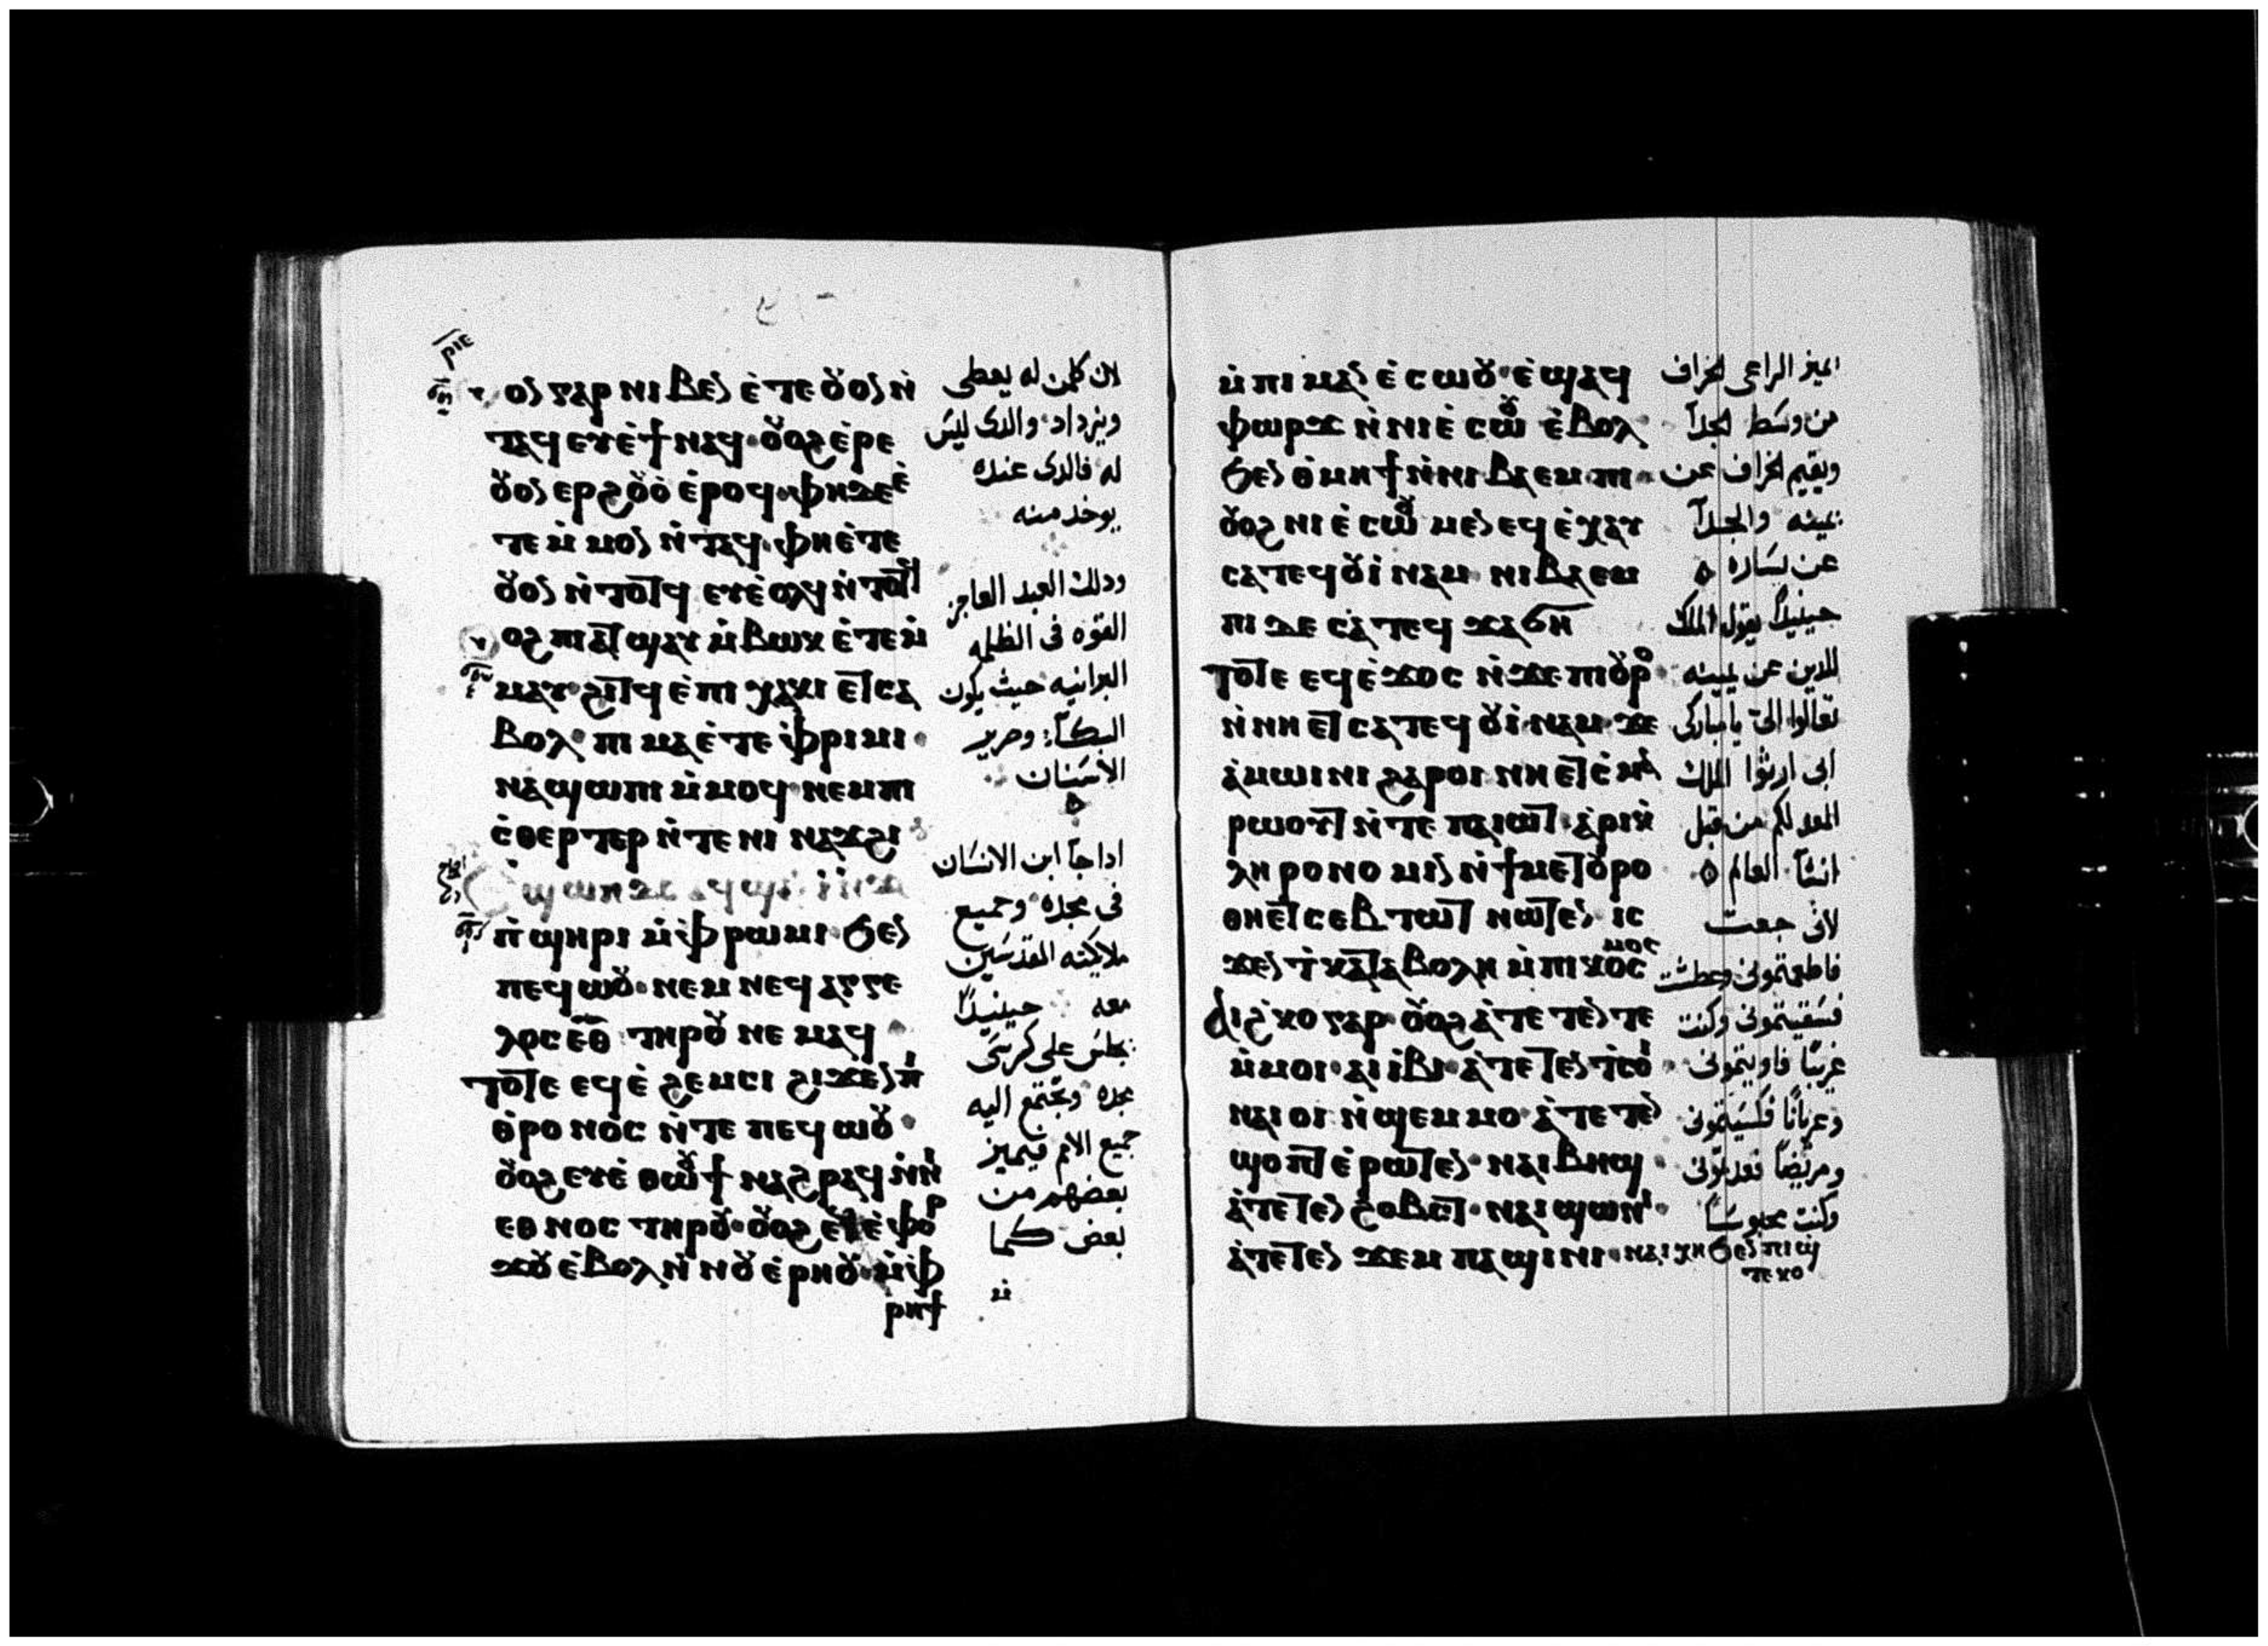 ⲣⲓⲉ
ⲟⲛ ⲅⲁⲣ ⲛⲓⲃⲉⲛ ⲉ̇ⲧⲉ ⲟⲩⲟⲛ ⲛ̇
ⲧⲁϥ ⲉⲩⲉ̇ϯ ⲛⲁϥ ⲟⲩⲟϩ ⲉ̇ⲣⲉ
ⲟⲩⲟⲛ ⲉⲣϩⲟⲩⲟ̇ ⲉ̇ⲣⲟϥ ⲫⲏ ⲇⲉ ⲉ̇
ⲧⲉ ⲙ̇ⲙⲟⲛ ⲛ̇ⲧⲁϥ ⲫⲏ ⲉ̇ⲧⲉ
ⲟⲩⲟⲛ ⲛ̇ⲧⲟⲧϥ ⲉⲩⲉ̇ⲟⲗϥ ⲛ̇ⲧⲟⲧϥ
ⲟϩ ⲡⲓⲁⲧϣⲁⲩ ⲙ̇ⲃⲱⲕ ⲉ̇ⲧⲉⲙ̇
ⲙⲁⲩ ϩⲓⲧϥ ⲉ̇ⲡⲓⲭⲁⲕⲓ ⲉⲧⲥⲁ
ⲃⲟⲗ ⲡⲓⲙⲁ ⲉ̇ⲧⲉ ⲫ̇ⲣⲓⲙⲓ
ⲛⲁϣⲱⲡⲓ ⲙ̇ⲙⲟϥ ⲛⲉⲙ ⲡⲓ
ⲥ̇ⲑⲉⲣⲧⲉⲣ ⲛ̇ⲧⲉ ⲛⲓⲛⲁϫϩⲓ
ⲡ̇ϣⲏⲣⲓ ⲙ̇ⲫ̇ⲣⲱⲙⲓ ϧⲉⲛ
ⲡⲉϥⲱⲟⲩ ⲛⲉⲙ ⲛⲉϥⲁⲅⲅⲉ
ⲗⲟⲥ ⲉⲑ ⲧⲏⲣⲟⲩ ⲛⲉⲙⲁϥ
ⲧⲟⲧⲉ ⲉϥⲉ̇ϩⲉⲙⲥⲓ ϩⲓϫⲉⲛ ⲡ̇
ⲑ̇ⲣⲟⲛⲟⲥ ⲛ̇ⲧⲉ ⲡⲉϥⲱⲟⲩ
ⲟⲩⲟϩ ⲉⲩⲉ̇ⲑⲱⲟⲩϯ ⲛⲁϩⲣⲁϥ ⲛ̇ⲛⲓ
ⲉⲑⲛⲟⲥ ⲧⲏⲣⲟⲩ ⲟⲩⲟϩ ⲉϥⲉ̇ⲫⲟⲣ
ϫⲟⲩ ⲉ̇ⲃⲟⲗ ⲛ̇ⲛⲟⲩⲉ̇ⲣⲏⲟⲩ ⲙ̇ⲫ̇
ⲣⲏϯ
لان كلمن له يعطى
ويزداد والدى ليس
له فالدى عنده
يوخد منه
ودلك العبد العاجز
القوه فى الظلمه
البرانيه حيث يكون
البكآ وصرير
الاسنان
اداجآ ابن الانسان
فى مجده وجميع
ملايكته القدسين
معه حينيدآ
يجلس على كرسى
مجده وتجتمع اليه
جميع الامم فيميز
بعضهم من
بعض كما
ⲙ̇ⲡⲓⲙⲁⲛⲉ̇ⲥⲱⲟⲩ ⲉ̇ϣⲁϥ
ⲫⲱⲣϫ ⲛ̇ⲛⲓⲉ̇ⲥⲱⲟⲩ ⲉ̇ⲃⲟⲗ
ϧⲉⲛ ⲑ̇ⲙⲏϯ ⲛ̇ⲛⲓⲃⲁⲉⲙⲡⲓ
ⲟⲩⲟϩ ⲛⲓⲉ̇ⲥⲱⲟⲩ ⲙⲉⲛ ⲉϥⲉ̇ⲭⲁⲩ
ⲥⲁⲧⲉϥⲟⲩⲓ̇ⲛⲁⲙ ⲛⲓⲃⲁⲉⲙ
ⲡⲓ ⲇⲉ ⲥⲁⲧⲉϥϫⲁϭⲏ
ⲧⲟⲧⲉ ⲉϥⲉ̇ϫⲟⲥ ⲛ̇ϫⲉ ⲡⲓⲟⲩⲣⲟ
ⲛ̇ⲛⲏ ⲉⲧⲥⲁⲧⲉϥⲟⲩⲓ̇ⲛⲁⲙ ϫⲉ
ⲁ̇ⲙⲱⲓⲛⲓ ϩⲁⲣⲟⲓ ⲛⲏ ⲉⲧⲥ̇ⲙⲁ
ⲣⲱⲟⲩⲧ ⲛ̇ⲧⲉ ⲡⲁⲓⲱⲧ ⲁ̇ⲣⲓⲕ̇
ⲗⲏⲣⲟⲛⲟⲙⲓⲛ ⲛ̇ϯⲙⲉⲧⲟⲩⲣⲟ
ⲑⲏ ⲉⲧⲥⲉⲃⲧⲱⲧ ⲛⲱⲧⲉⲛ ⲓⲥ
ϫⲉⲛ ⲧ̇ⲕⲁⲧⲁⲃⲟⲗⲏ ⲙ̇ⲡⲓⲕⲟⲥⲙⲟⲥ
ⲁⲓϩ̇ⲕⲟ ⲅⲁⲣ ⲟⲩⲟϩ ⲁ̇ⲧⲉⲧⲉⲛⲧⲉ
ⲙ̇ⲙⲟⲓ ⲁⲓⲓ̇ⲃⲓ ⲁ̇ⲧⲉⲧⲉⲛⲧ̇ⲥⲟⲓ
ⲛⲁⲓⲟⲓ ⲛ̇ϣⲉⲙⲙⲟ ⲁ̇ⲧⲉⲧⲉⲛ
ϣⲟⲡⲧ ⲉ̇ⲣⲱⲧⲉⲛ ⲛⲁⲓⲃⲏϣ
ⲁ̇ⲧⲉⲧⲉⲛϩ̇ⲟⲃⲥⲧ ⲛⲁⲓϣⲱⲛⲓ
ⲁ̇ⲧⲉⲧⲉⲛϫⲉⲙⲡⲁϣⲓⲛⲓ ⲛⲁⲓⲭⲏ ϧⲉⲛ ⲡⲓϣ̇
ⲧⲉⲕⲟ
يميز الراعى الخراف
من وسط الجدآ
ويقيم الخراف عن
يمينه والجدآ
عن يساره
حينيدآ يقول الملك
للدين عن يمينه
تعالوا الىّ يامباركى
ابى ارثوا الملك
المعد لكم من قبل
انشآ العالم
لانى جعت
فاطعمتمونى وعطشت
فسقيتمونى وكنت
غريبًا فاويتمونى
وعريانًا فكسيتمونى
ومريضًا فعدتونى
وكنت محبوسًا